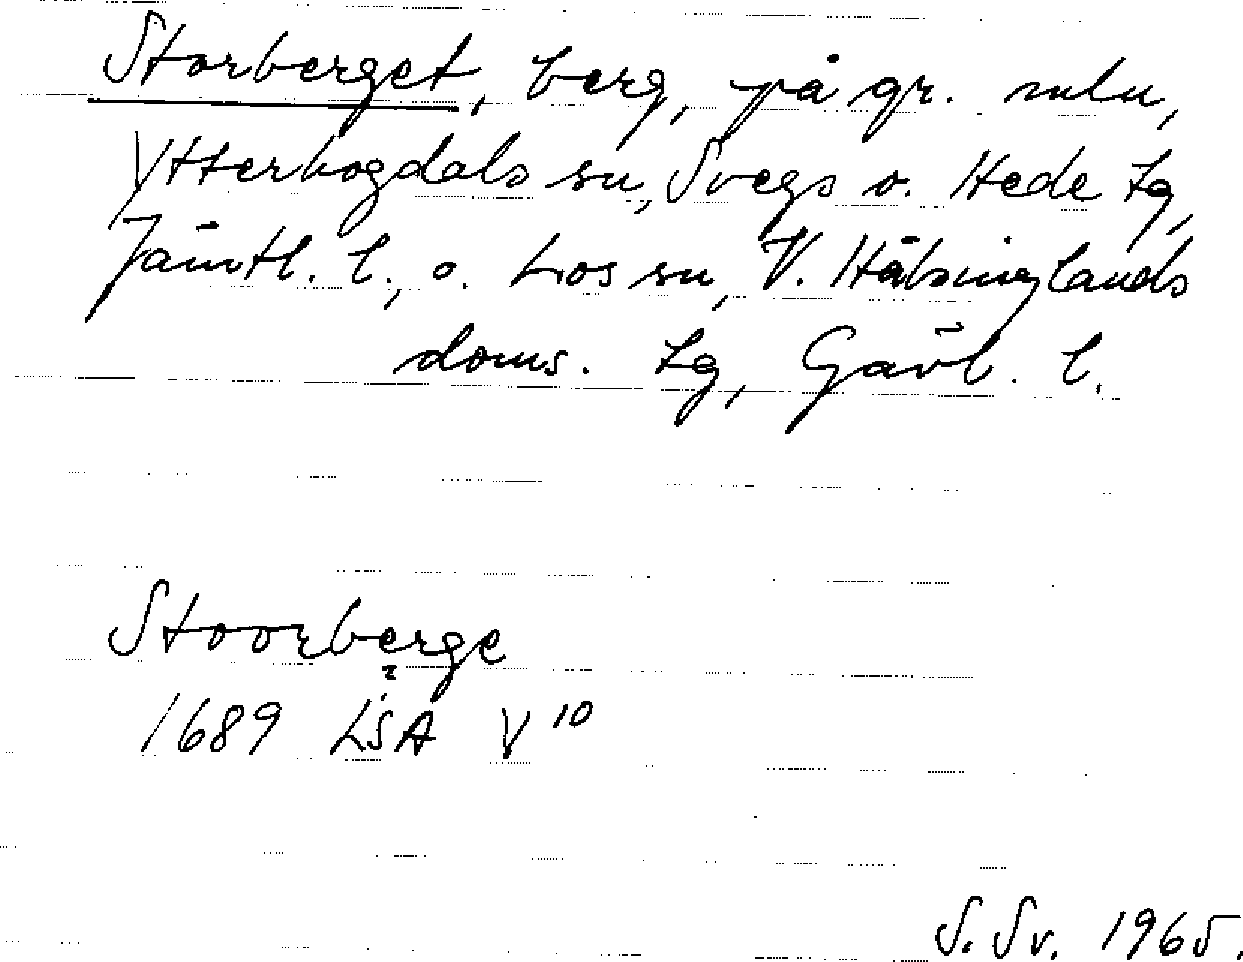 Storberget, berg, på gr. mln,
Ytterhogdals sn, Svegs o. Hede tg,
Jämtl. l., o. Los sn, V. Hälsinglands
doms. tg, Gävl. l.
Stoorberge
1689 LSA V 10
S. Sv. 1965.